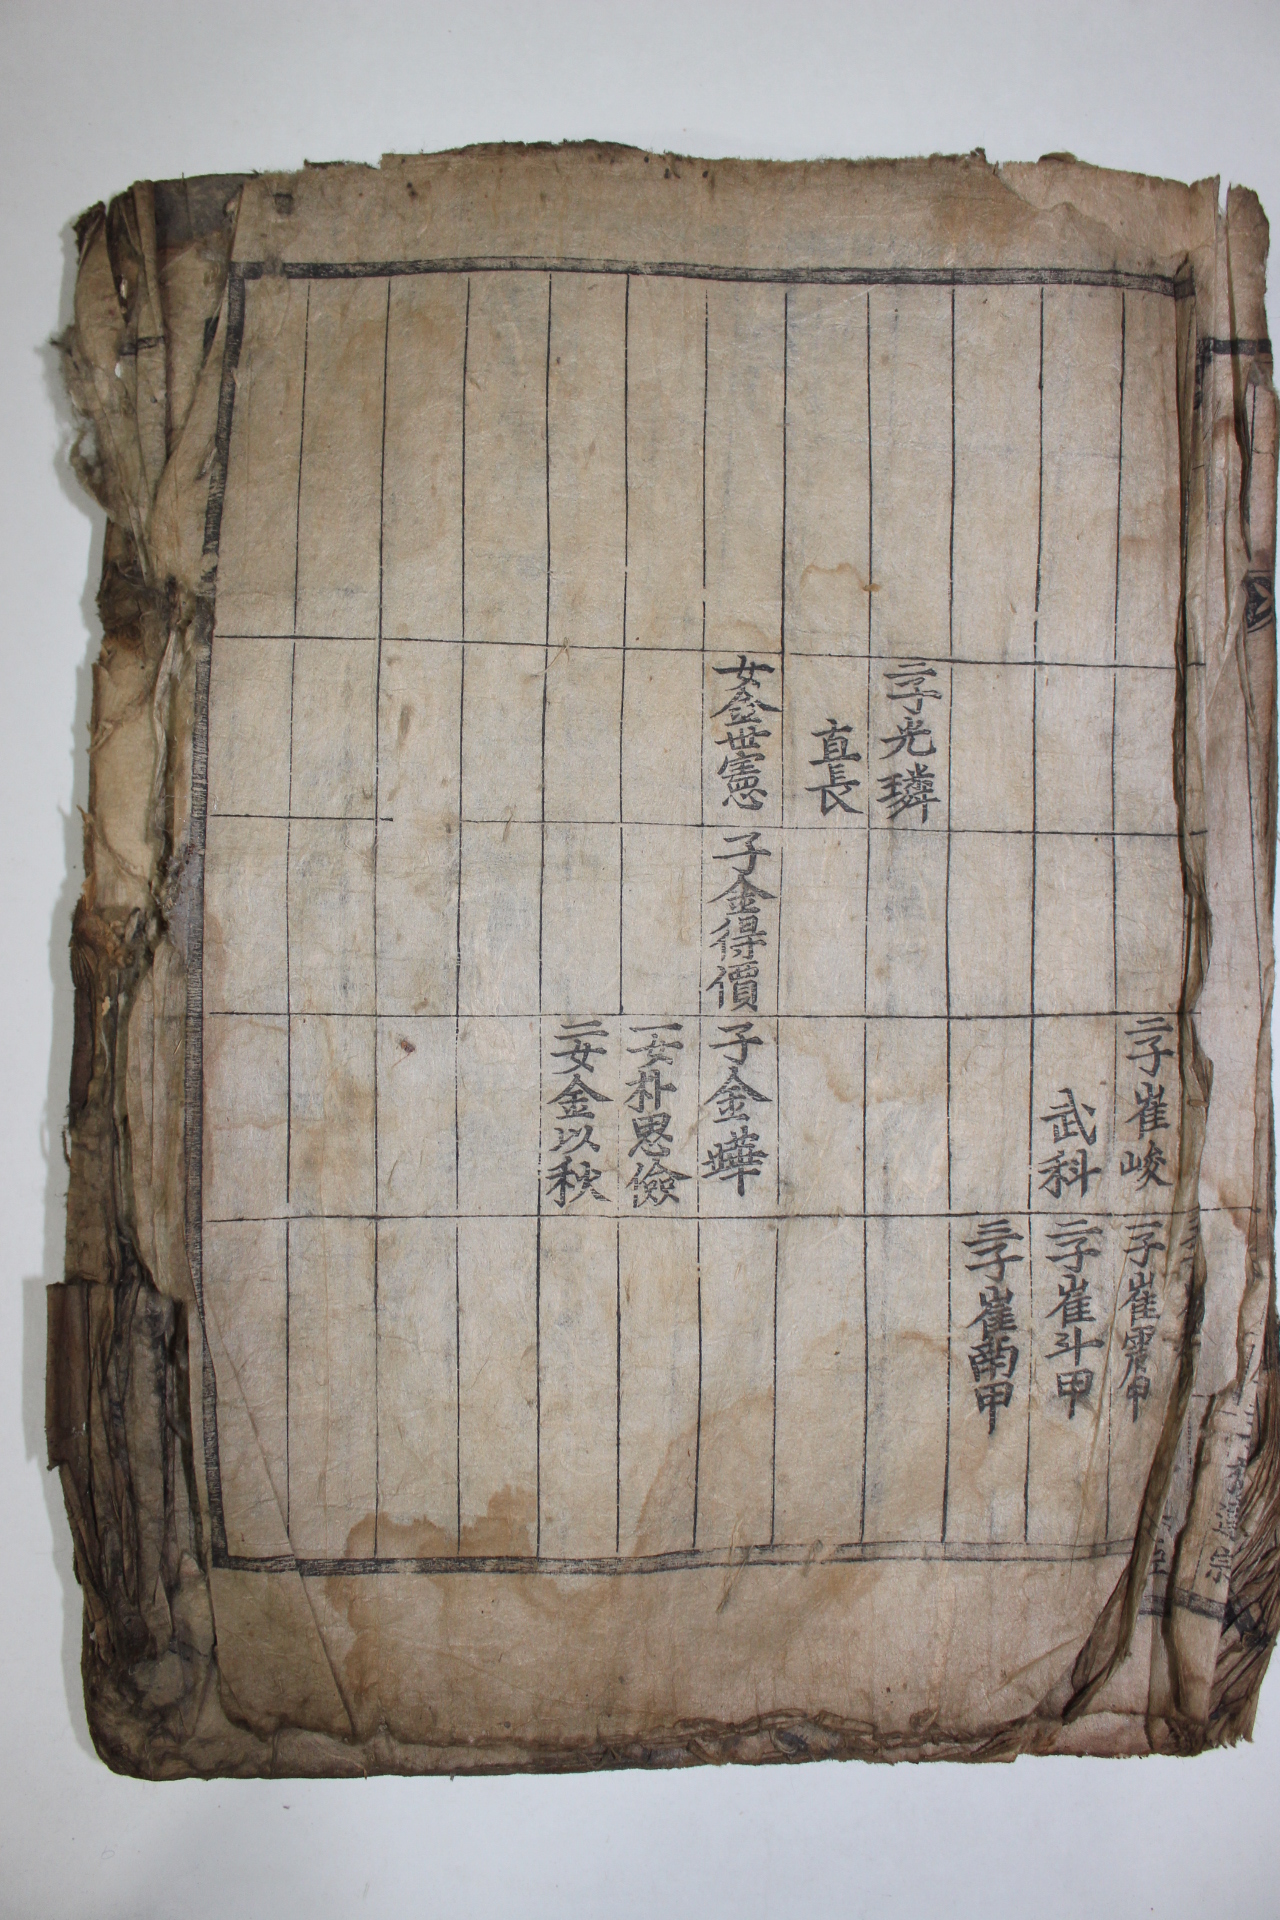 二子崔峻
武科
二子光璘
直長
女金世憲
子金得價
子金曄
一女朴思儉
二女金以秋
一子崔震甲
二子崔斗甲
三子崔南甲